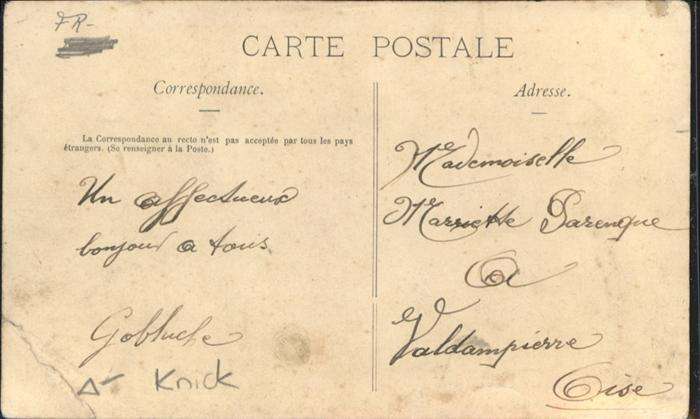 FR-
CARTE POSTALE
Correspondance.
La Correspondance au recto n'est pas acceptée par tous les pays
étrangers. (Se renseigner à la Poste.)
Un affectueux
bonjour a tous
Knick
Adresse.
Mademoiselle
Marriette
a
Valdampierre
Oise